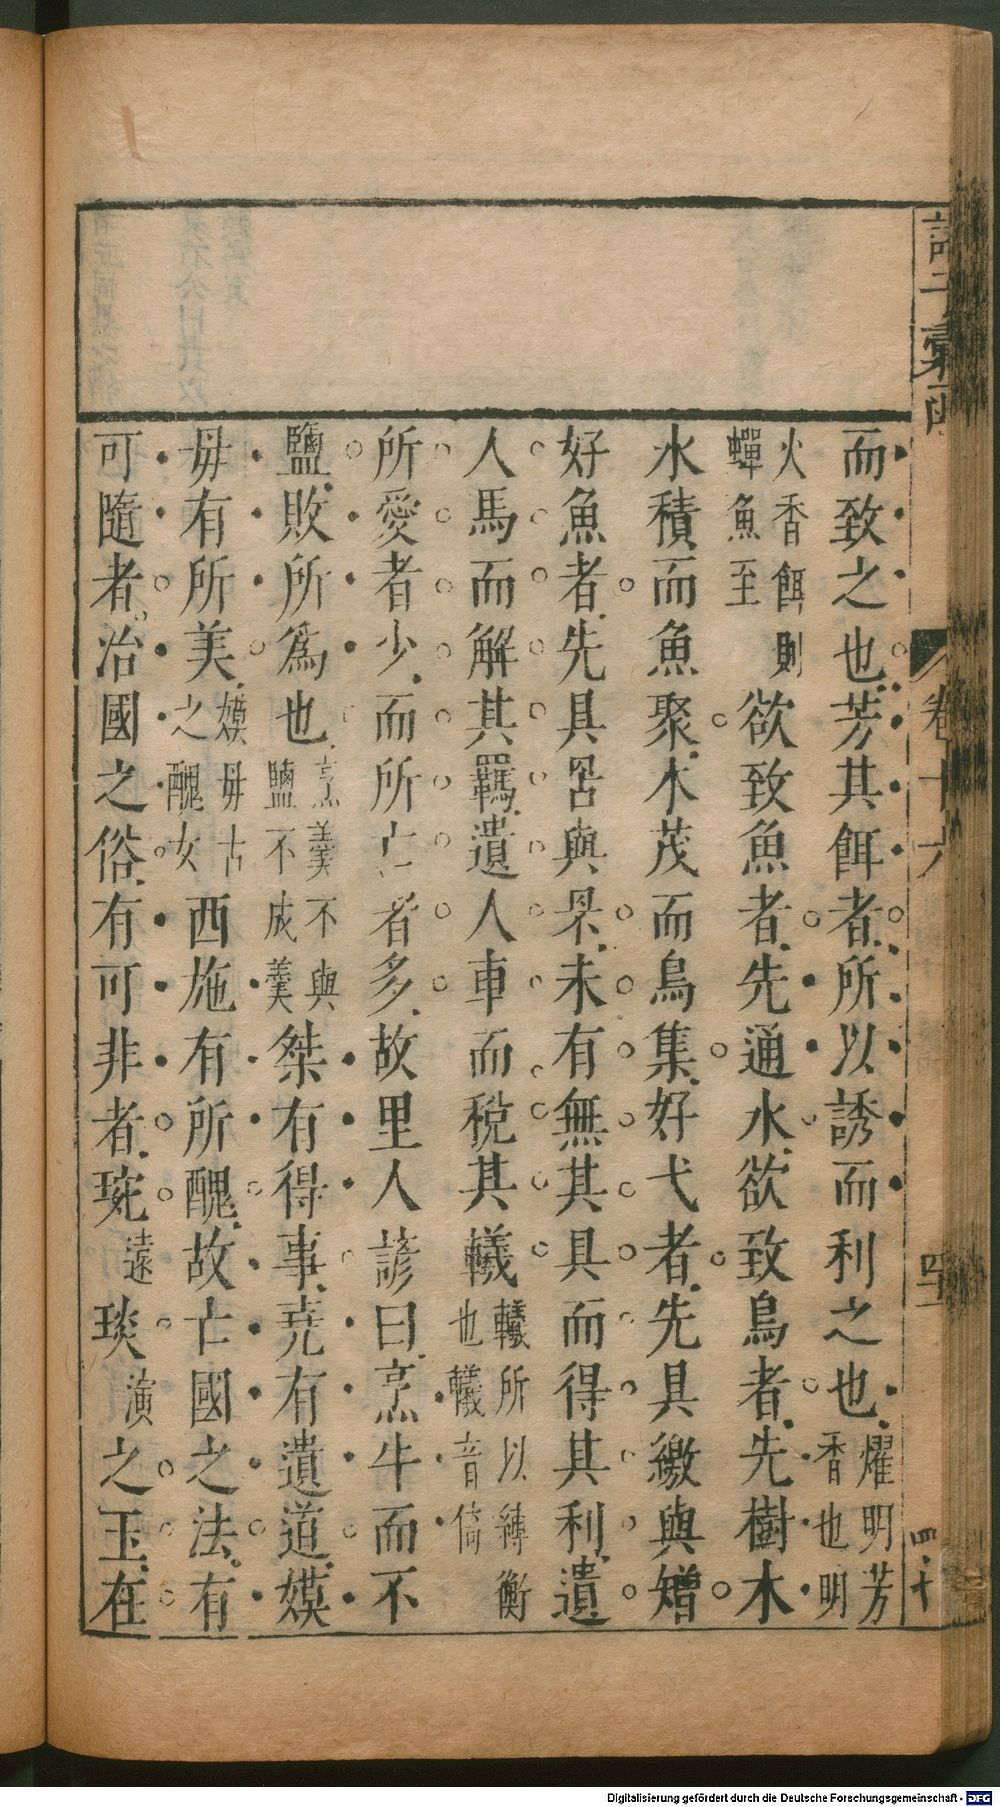 諸子彙函
卷十六
四十
而致之也芳其餌者所以誘而利之也燿明芳香也明
火香餌則蟬魚至欲致魚者先通水欲致鳥者先樹木
水積而魚聚木茂而鳥集好弋者先具繳與矰
好魚者先具罟與罘未有無其具而得其利遺
人馬而解其羈遺人車而稅其䡾䡾所以縛衡也䡾音倚
所愛者少而所亡者多故里人諺曰烹牛而不
鹽敗所為也烹羹不與鹽不成羹桀有得事堯有遺道嫫
毋有所美嫫毋古之醜女西施有所醜故亡國之法有
可隨者治國之俗有可非者琬遠琰演之玉在
Digitalisierung gefördert durch die Deutsche Forschungsgemeinschaft - DFG